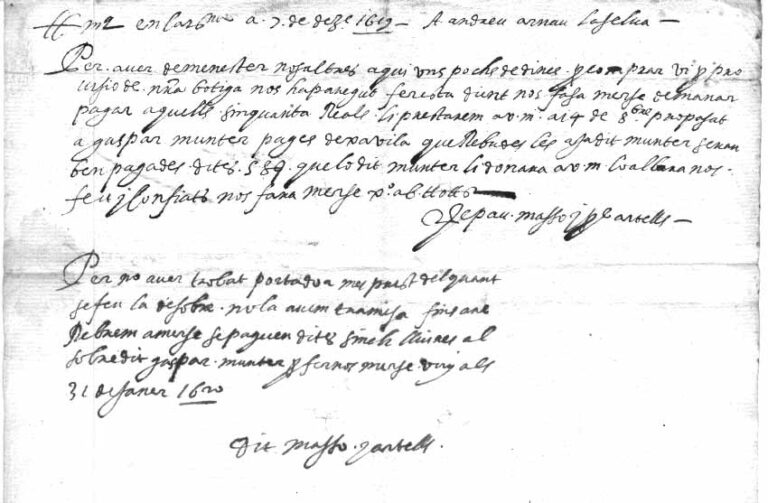 en a 7 de dez.e 1619 A andreu arnau laselva
Per aver demenester nosaltres aqui uns pochs de dines p comprar vi p pro
de nra botiga nos ha paregut fer esta dient nos fasa merse de manar
pagar aquells sinquanta Reals li prestarem a v.m. a 14 de 8bre proposat
a gaspar munter pages de que Rebudes les a sa dit munter seran
ben pagades dites 5 que lo dit munter li donara a v.m. nos
feu y confiats nos fara merse xº ab tots
Je pau masso y p artells
Per no aver trobat portador mes prest del quant
se feu la desobre no la avem tramesa fins are
Rebrem a merse se paguen dites sinch lliures al
sobredit gaspar munter p fernos merse vuy als
31 de Janer 1620
Dit masso y artells